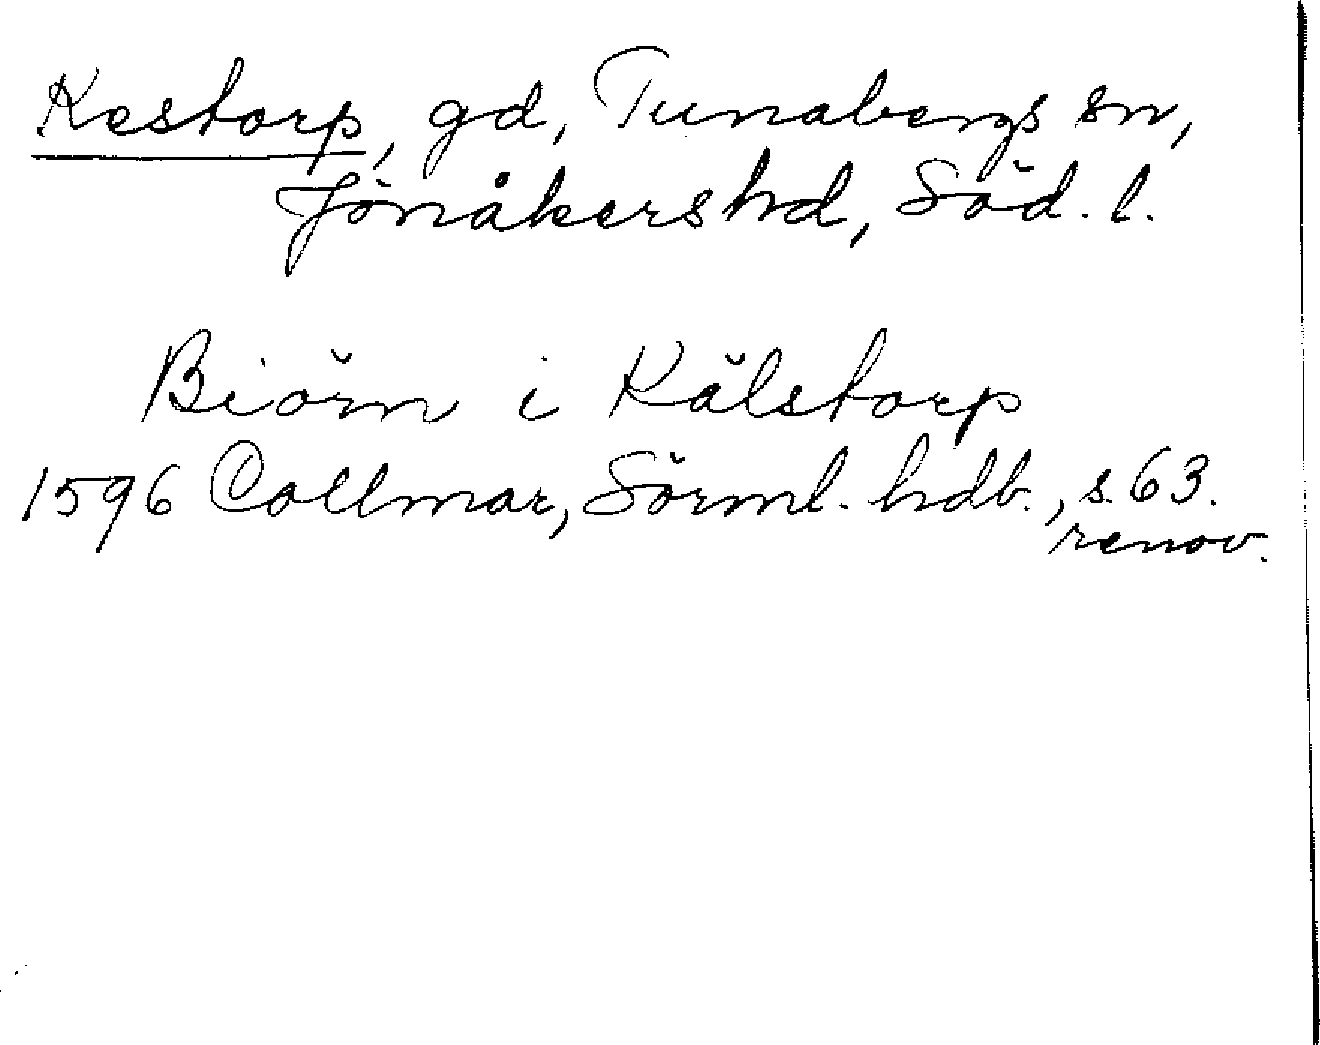 Kestorp, gd, Tunabergs sn,
Jönåkers hd, Söd. l.
Biörn i Kälstorp
1596 Collmar, Sörml. hdb., s. 63.
renov.